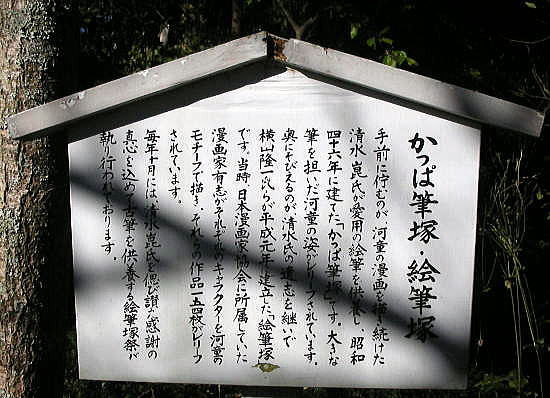 かっぱ筆塚・絵筆塚
手前に佇むのが、河童の漫画を描き続けた
清水崑氏が愛用の絵筆を供養し、昭和
四十六年に建てた「かっぱ筆塚」です。大きな
筆を担いだ河童の姿がレリーフされています。
奥にそびえるのが、清水氏の遺志を継いで
横山隆一氏らが平成元年に建立した「絵筆塚」
です。当時、日本漫画家協会に所属していた
漫画家有志がそれぞれのキャラクターを河童の
モチーフで描き、それらの作品一五四枚がレリーフ
されています。
毎年十月には、清水崑氏を偲び讃え、感謝の
真心を込めて古筆を供養する絵筆塚祭が
執り行われております。